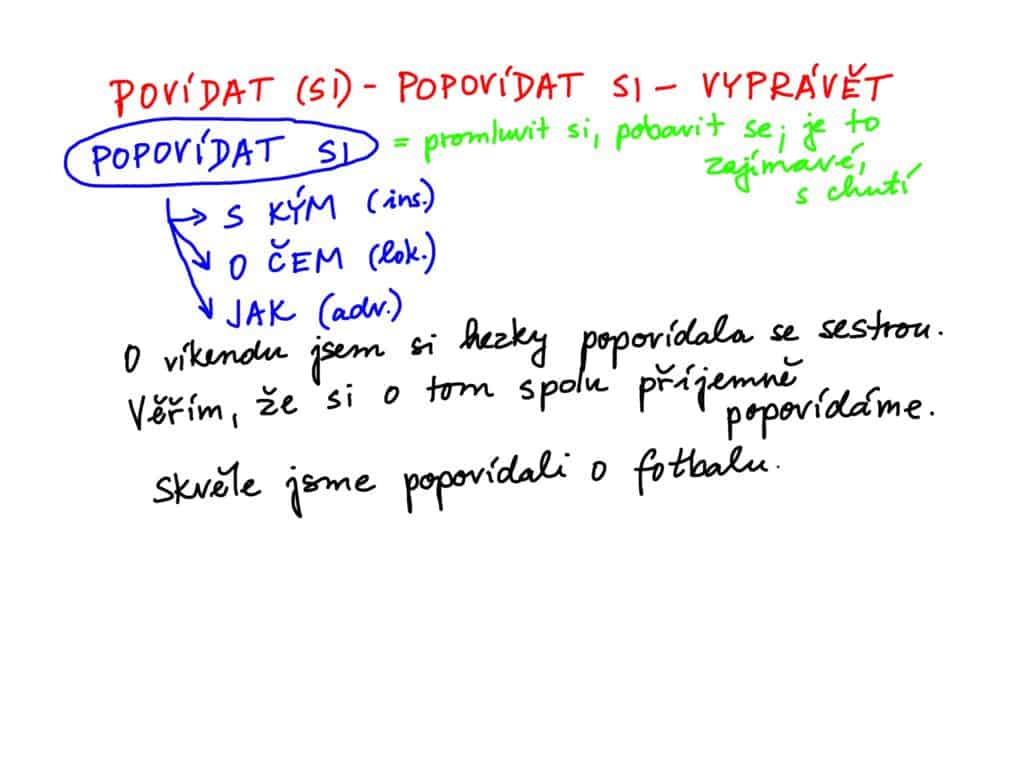 POVÍDAT (SI) - POPOVÍDAT SI - VYPRÁVĚT
POPOVÍDAT SI = promluvit si, pobavit se; je to
zajímavé,
s chutí
S KÝM (ins.)
O ČEM (lok.)
JAK (adv.)
O víkendu jsem si hezky popovídala se sestrou.
Věřím, že si o tom spolu příjemně
popovídáme.
Skvěle jsme popovídali o fotbalu.